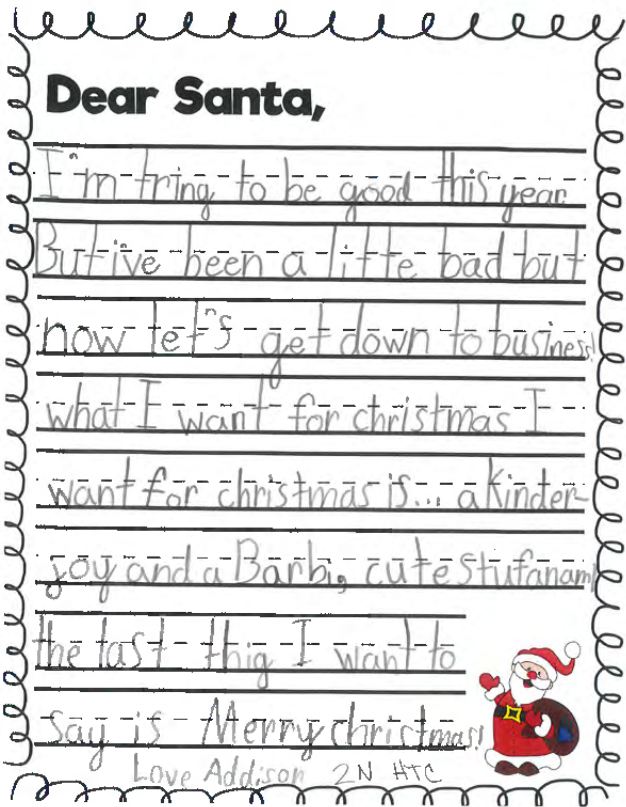 Dear Santa,
I'm tring to be good this year.
But ive been a litte bad but
now let's get down to business!
what I want for christmas I
want for christmas is... a kinder-
joy and a Barbi, cute stufanaml
the last thig I want to
say is Merry christmas!
Love Addison 2N HTC